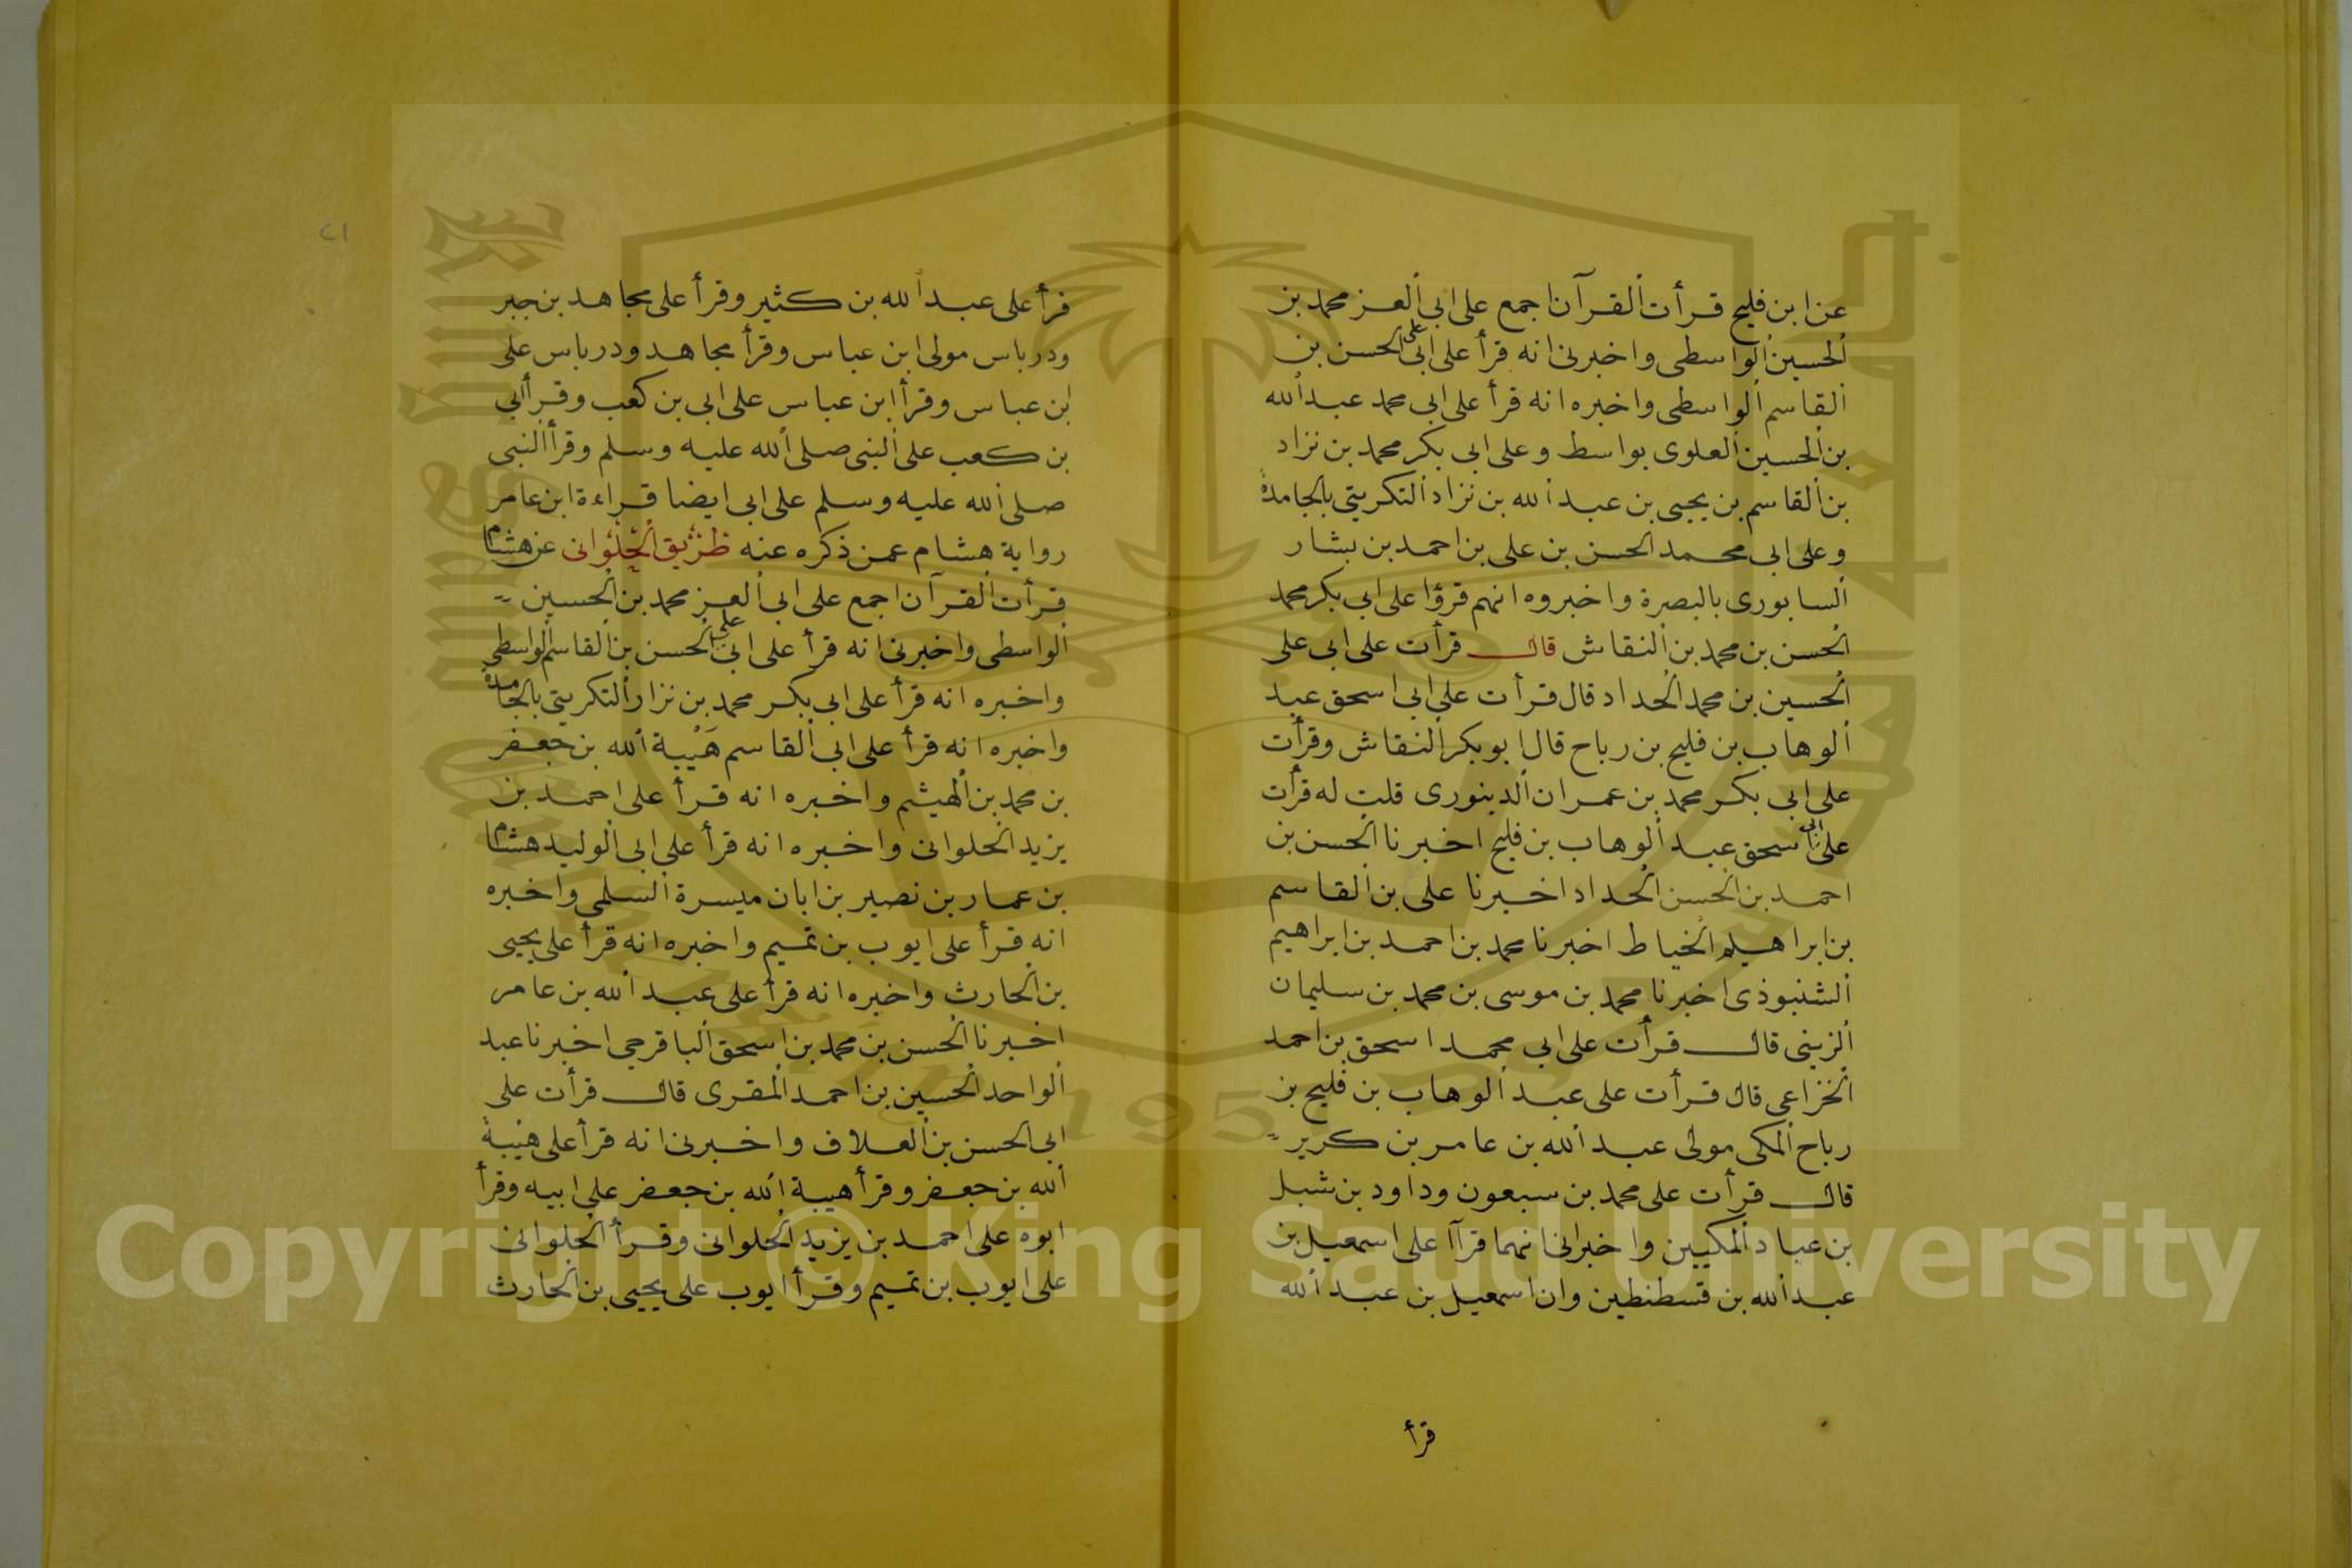 عن ابن فليح قرأت القرآن اجمع على ابي العز محمد بن
الحسين الواسطى واخبرنى انه قرأ على ابى على الحسن بن
القاسم الواسطى واخبره انه قرأ على ابى محمد عبد الله
بن الحسين العلوى بواسط وعلى ابى بكر محمد بن نزاد
بن القاسم بن يحيى بن عبد الله بن نزاد التكريتى بالجامدة
وعلى ابى محمد الحسن بن على بن احمد بن بشار
السابورى بالبصرة واخبروه انهم قرؤا على ابى بكر محمد
الحسن بن محمد بن النقاش قال قرأت على ابى على
الحسين بن محمد الحداد قال قرأت على ابى اسحق عبد
الوهاب بن فليح بن رباح قال ابو بكر النقاش وقرأت
على ابى بكر محمد بن عمران الدينورى قلت له قرأت
على ابى اسحق عبد الوهاب بن فليح اخبرنا الحسن بن
احمد بن الحسن الحداد اخبرنا على بن القاسم
بن ابراهيم الخياط اخبرنا محمد بن احمد بن ابراهيم
الشنبوذى اخبرنا محمد بن موسى بن محمد بن سليمان
الزينى قال قرأت على ابي محمد اسحق بن احمد
الخزاعى قال قرأت على عبد الوهاب بن فليح بن
رباح المكى مولى عبد الله بن عامر بن كريز
قال قرأت على محمد بن سبعون وداود بن شبل
بن عباد المكيين واخبرانى انهما قرآا على اسمعيل بن
عبد الله بن قسطنطين وان اسمعيل بن عبد الله
قرأ
٢١
قرأ على عبد الله بن كثير وقرأ على مجاهد بن جبر
ودرباس مولى ابن عباس وقرأ مجاهد ودرباس على
ابن عباس وقرأ ابن عباس على ابى بن كعب وقرأ ابي
بن كعب على النبى صلى الله عليه وسلم وقرأ النبى
صلى الله عليه وسلم على ابى ايضا قراءة ابن عامر
رواية هشام عمن ذكره عنه طريق الحلوانى عن هشام
قرأت القرآن اجمع على ابى العز محمد بن الحسين
الواسطى واخبرنى انه قرأ على ابى على الحسن بن القاسم الواسطى
واخبره انه قرأ على ابى بكر محمد بن نزار التكريتى بالجامدة
واخبره انه قرأ على ابى القاسم هَيْبة الله بن جعفر
بن محمد بن الهيثم واخبره انه قرأ على احمد بن
يزيد الحلوانى واخبره انه قرأ على ابى الوليد هشام
بن عمار بن نصير بن ابان ميسرة السلمي واخبره
انه قرأ على ايوب بن تميم واخبره انه قرأ على يحيى
بن الحارث واخبره انه قرأ على عبد الله بن عامر
اخبرنا الحسن بن محمد بن اسحق الباقرحى اخبرنا عبد
الواحد الحسين بن احمد المقرى قال قرأت على
ابى الحسن بن العلاف واخبرنى انه قرأ على هيبة
الله بن جعفر وقرأ هيبة الله بن جعفر على ابيه وقرأ
ابوه على احمد بن يزيد الحلوانى وقرأ الحلوانى
على ايوب بن تميم وقرأ ايوب على يحيى بن الحارث
1957
Copyright © King Saud University